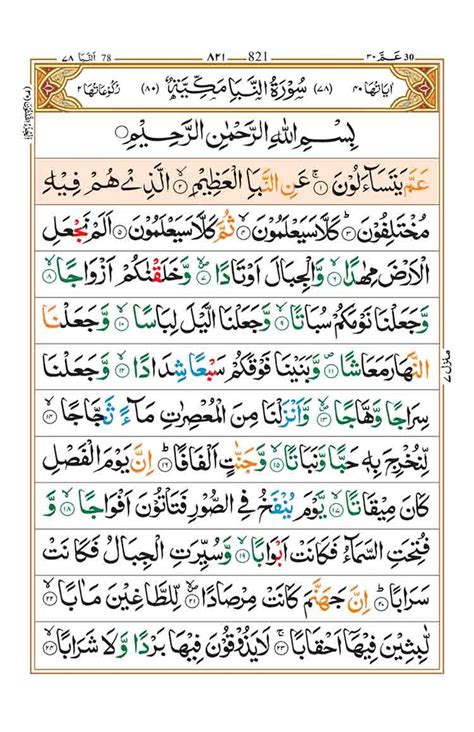 عَمَّ ٣٠ 30 821 ٨٢١ 78 النَّبَا ٧٨
اٰيَاتُهَا ٤٠ (٧٨) سُوْرَةُ النَّبَاِ مَكِّيَّةٌ (٨٠) رُكُوْعَاتُهَا ٢
بِسْمِ اللهِ الرَّحْمٰنِ الرَّحِيْمِ
عَمَّ يَتَسَآءَلُوْنَ ۚ ١ عَنِ النَّبَاِ الْعَظِيْمِ ۙ ٢ الَّذِيْ هُمْ فِيْهِ
مُخْتَلِفُوْنَ ؕ ٣ كَلَّا سَيَعْلَمُوْنَ ۙ ٤ ثُمَّ كَلَّا سَيَعْلَمُوْنَ ٥ اَلَمْ نَجْعَلِ
الْاَرْضَ مِهٰدًا ۙ ٦ وَّالْجِبَالَ اَوْتَادًا ۪ۙ ٧ وَّخَلَقْنٰكُمْ اَزْوَاجًا ۙ ٨
وَّجَعَلْنَا نَوْمَكُمْ سُبَاتًا ۙ ٩ وَّجَعَلْنَا الَّيْلَ لِبَاسًا ۙ ١٠ وَّجَعَلْنَا
النَّهَارَ مَعَاشًا ۪ ١١ وَّبَنَيْنَا فَوْقَكُمْ سَبْعًا شِدَادًا ۙ ١٢ وَّجَعَلْنَا
سِرَاجًا وَّهَّاجًا ۪ۙ ١٣ وَّاَنْزَلْنَا مِنَ الْمُعْصِرٰتِ مَآءً ثَجَّاجًا ۙ ١٤
لِّنُخْرِجَ بِهٖ حَبًّا وَّنَبَاتًا ۙ ١٥ وَّجَنّٰتٍ اَلْفَافًا ؕ ١٦ اِنَّ يَوْمَ الْفَصْلِ
كَانَ مِيْقَاتًا ۙ ١٧ يَّوْمَ يُنْفَخُ فِي الصُّوْرِ فَتَاْتُوْنَ اَفْوَاجًا ۙ ١٨ وَّ
فُتِحَتِ السَّمَآءُ فَكَانَتْ اَبْوَابًا ۙ ١٩ وَّسُيِّرَتِ الْجِبَالُ فَكَانَتْ
سَرَابًا ؕ ٢٠ اِنَّ جَهَنَّمَ كَانَتْ مِرْصَادًا ۪ۙ ٢١ لِّلطَّاغِيْنَ مَاٰبًا ۙ ٢٢
لّٰبِثِيْنَ فِيْهَآ اَحْقَابًا ۚ ٢٣ لَا يَذُوْقُوْنَ فِيْهَا بَرْدًا وَّلَا شَرَابًا ۙ ٢٤